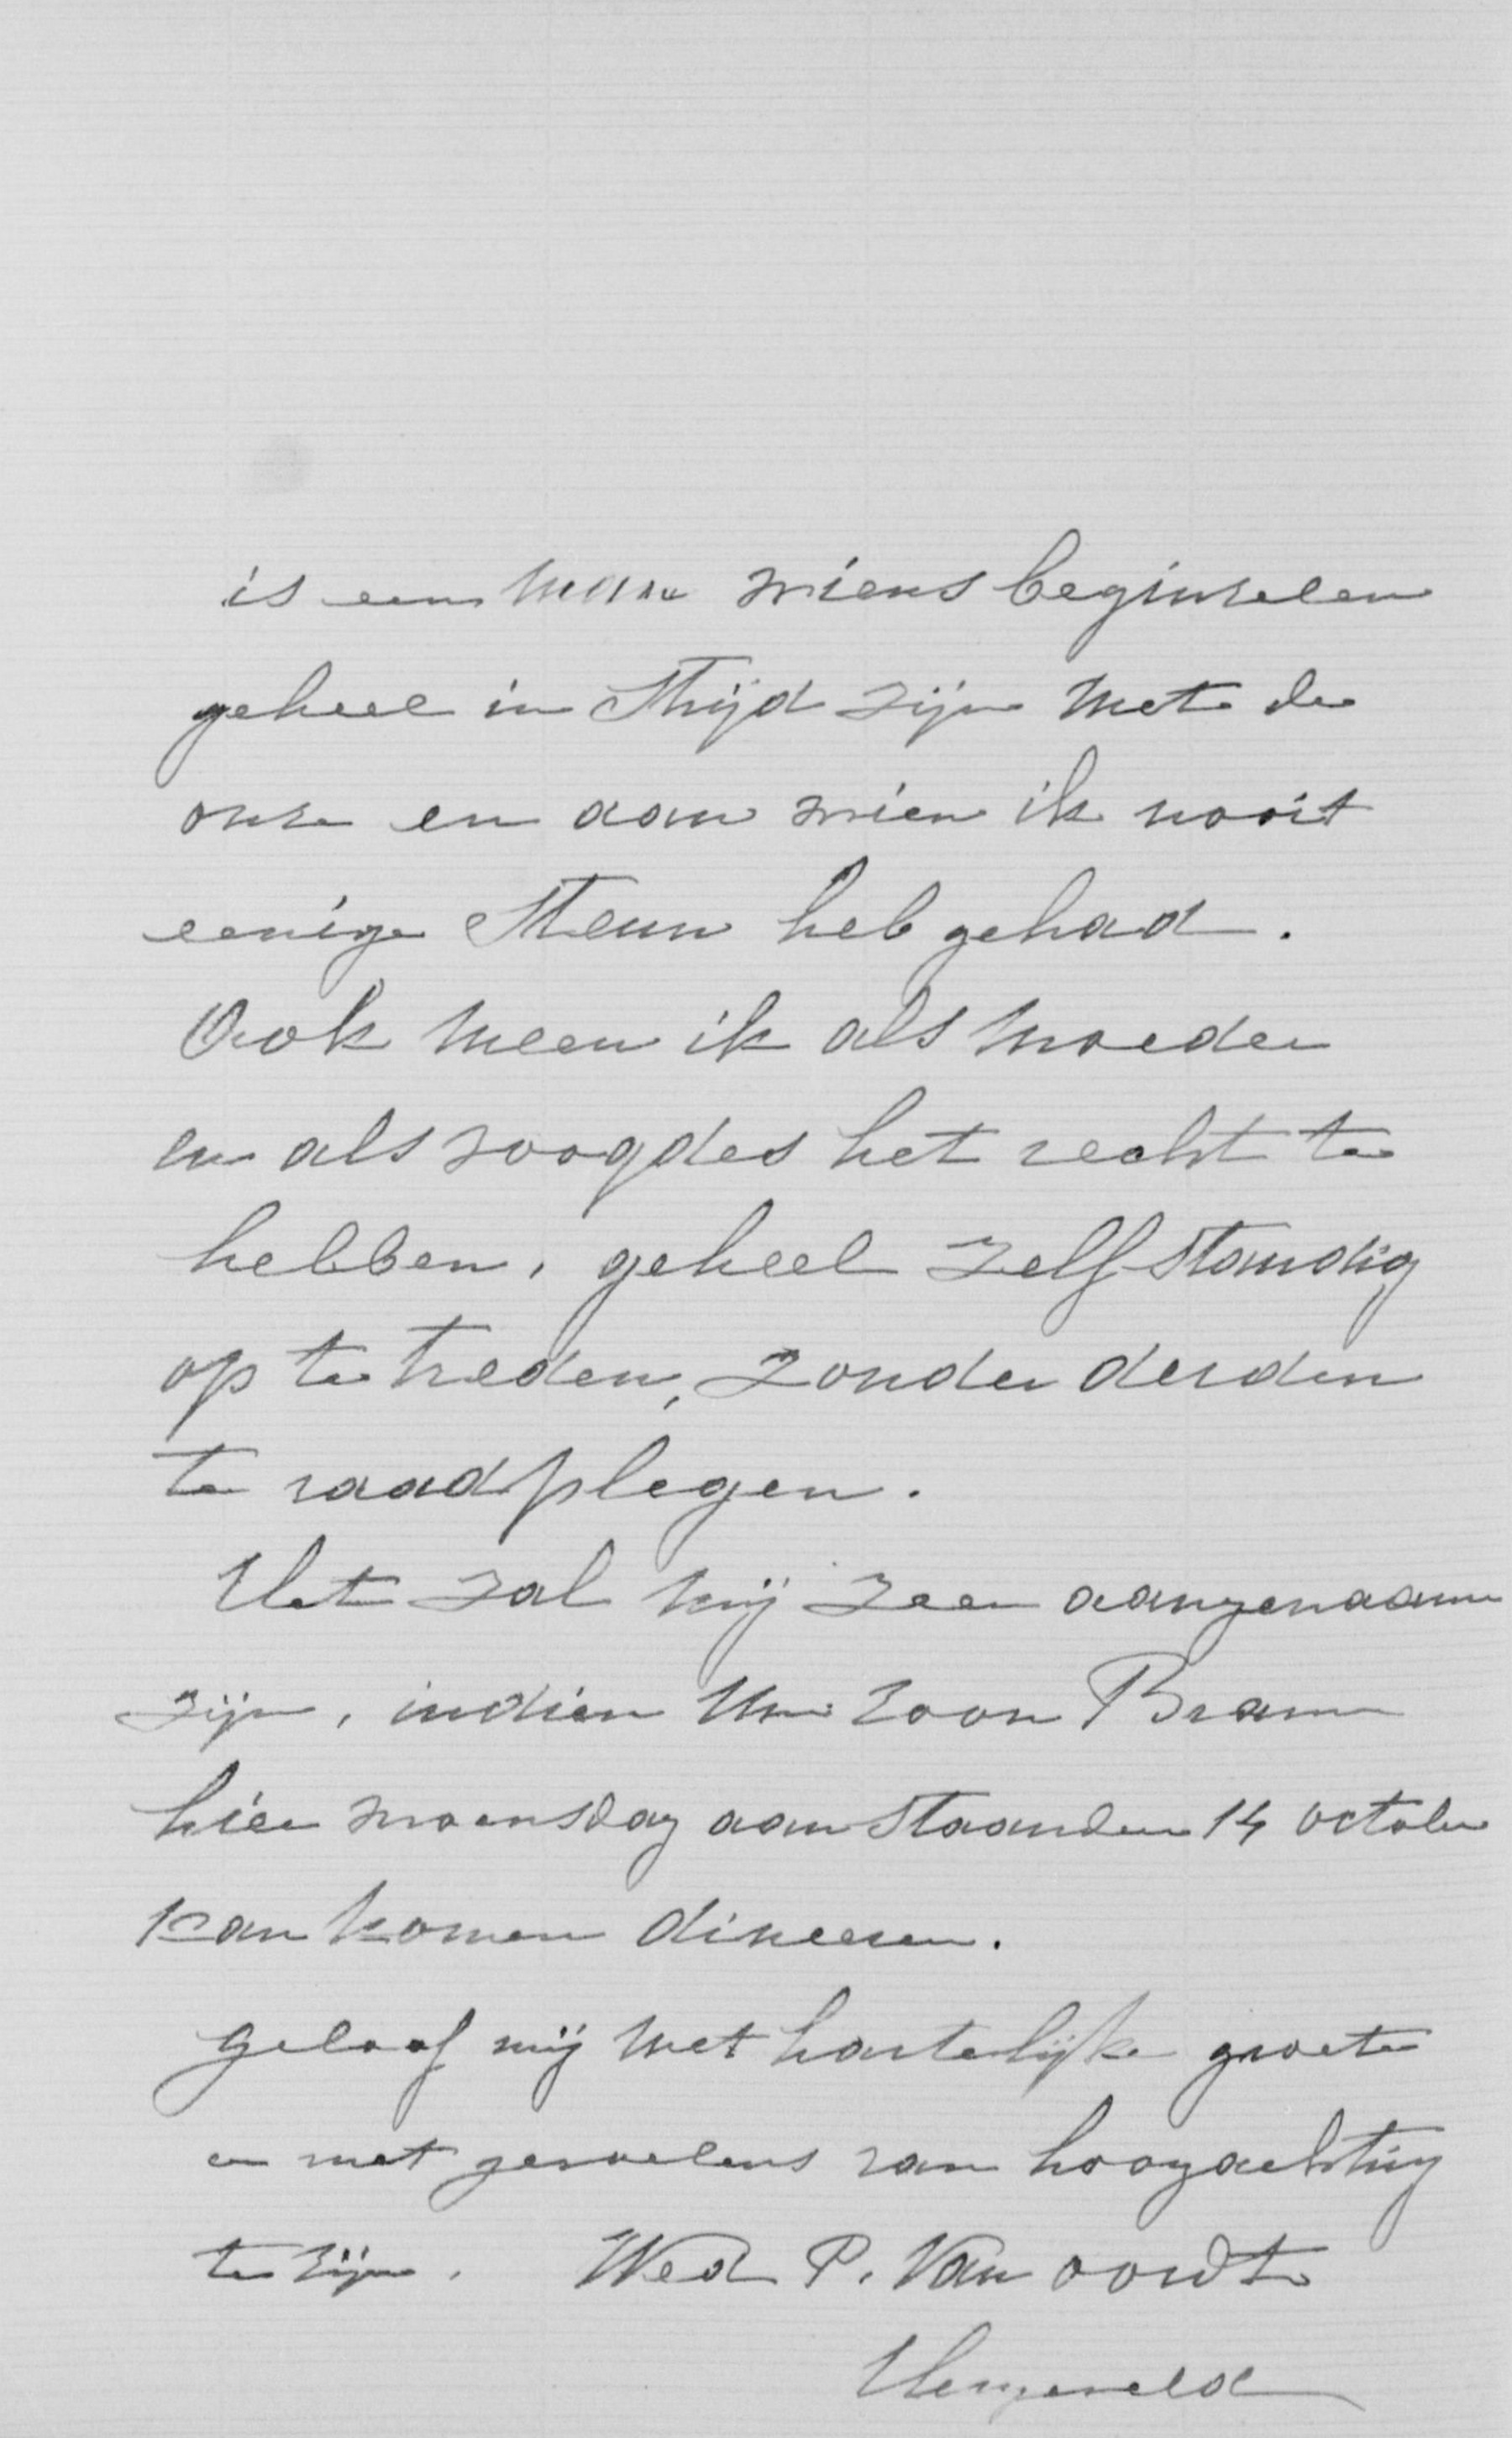 is een man wiens beginselen
geheel in strijd zijn met de
onze en aan wien ik nooit
eenige steun heb gehad.
Ook meen ik als moeder
en als voogdes het recht te
hebben, geheel zelfstandig
op te treden, zonder derden
te raadplegen.
Het zal mij zeer aangenaam
zijn, indien Uw zoon Bram
hier woensdag aanstaanden 14 october
kan komen dineeren.
geloof mij met hartelijke groete
en met gevoelens van hoogachting
te zijn. Wed P. Van oordt
Hengeveld